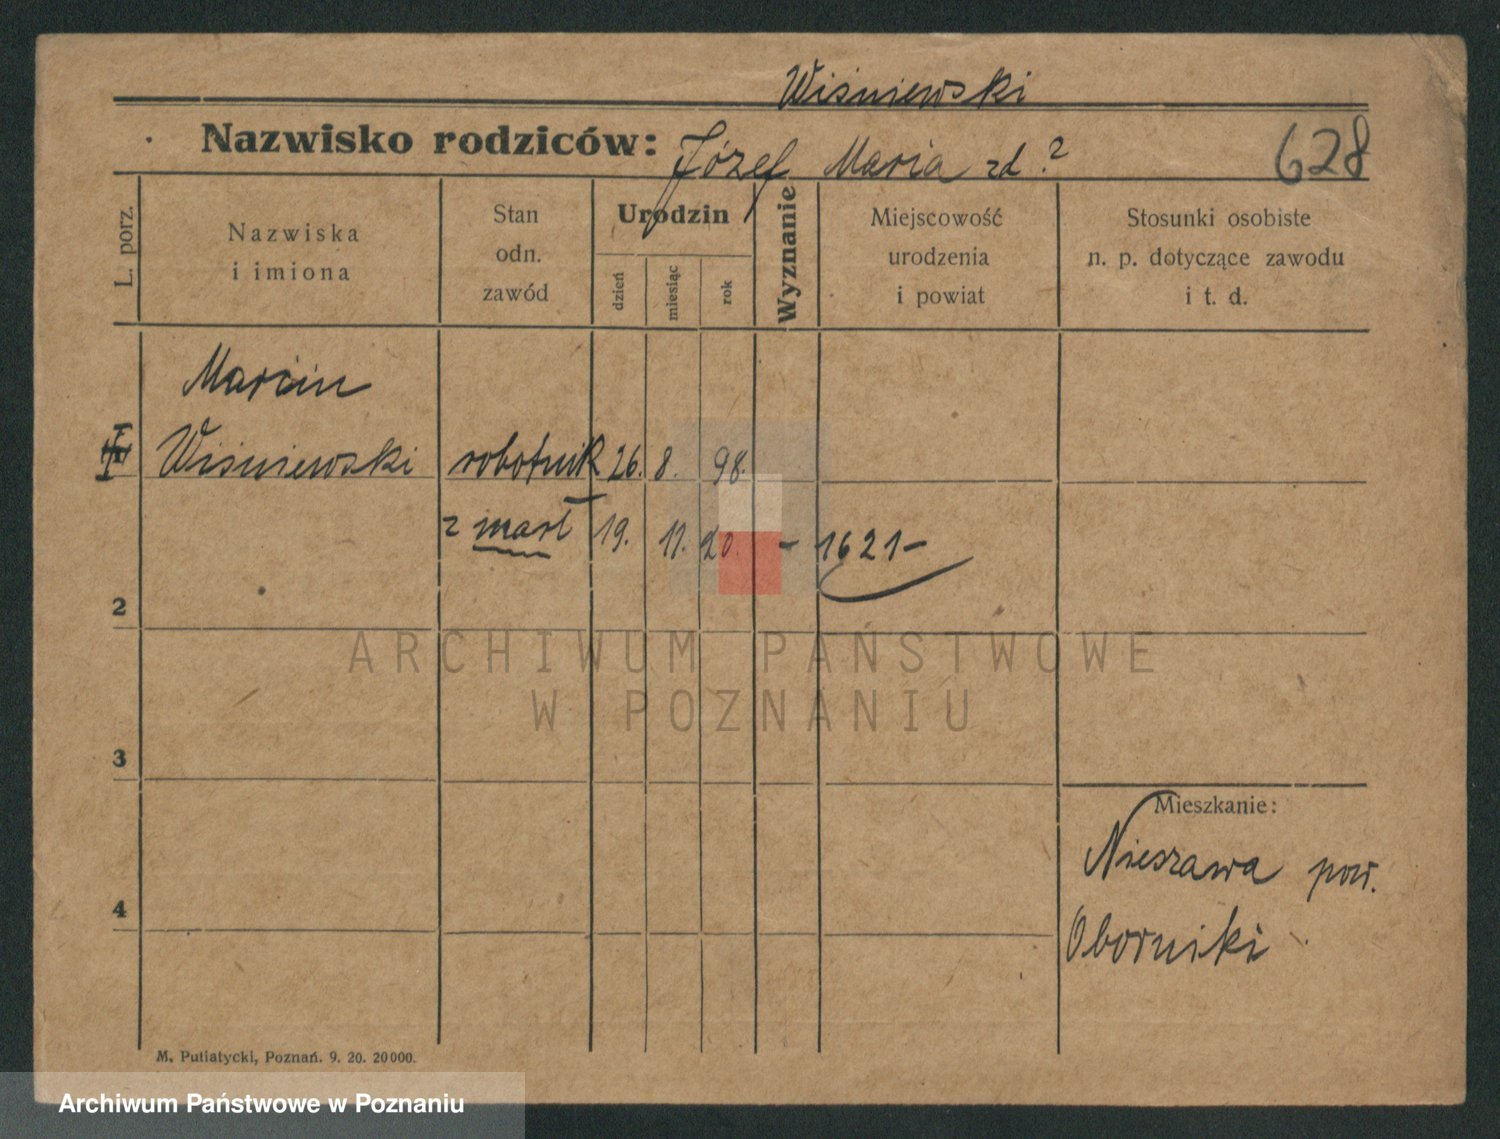 Wiśniewski
Nazwisko rodziców: Józef Maria zd. ? 628
L. porz.
Nazwiska
i imiona
Stan
odn.
zawód
Urodzin
dzień
miesiąc
rok
Wyznanie
Miejscowość
urodzenia
i powiat
Stosunki osobiste
n. p. dotyczące zawodu
i t. d.
Marcin
Wiśniewski robotnik 26. 8. 98.
zmarł 19. 11. 20. - 1621 -
2
3
4
Mieszkanie:
Nieszawa pow.
Oborniki
M. Putiatycki, Poznań. 9. 20. 20000.
ARCHIWUM PAŃSTWOWE
W POZNANIU
Archiwum Państwowe w Poznaniu